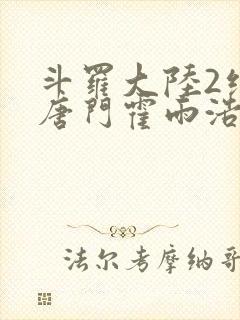 斗羅大陸2
唐門霍雨浩
法尔考摩纳哥